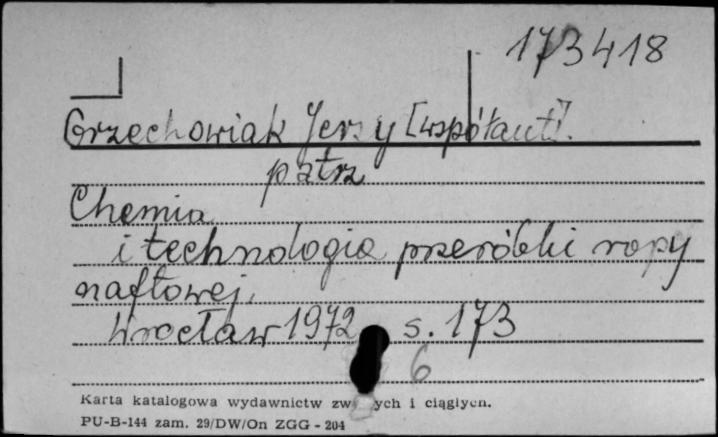 173418
Grzechowiak Jerzy [współaut].
patrz
Chemia
i technologia przeróbki ropy
naftowej.
Wrocław 1972 s. 173
6
Karta katalogowa wydawnictw ciągłych i
PU-B-144 zam. 29/DW/On ZGG - 204